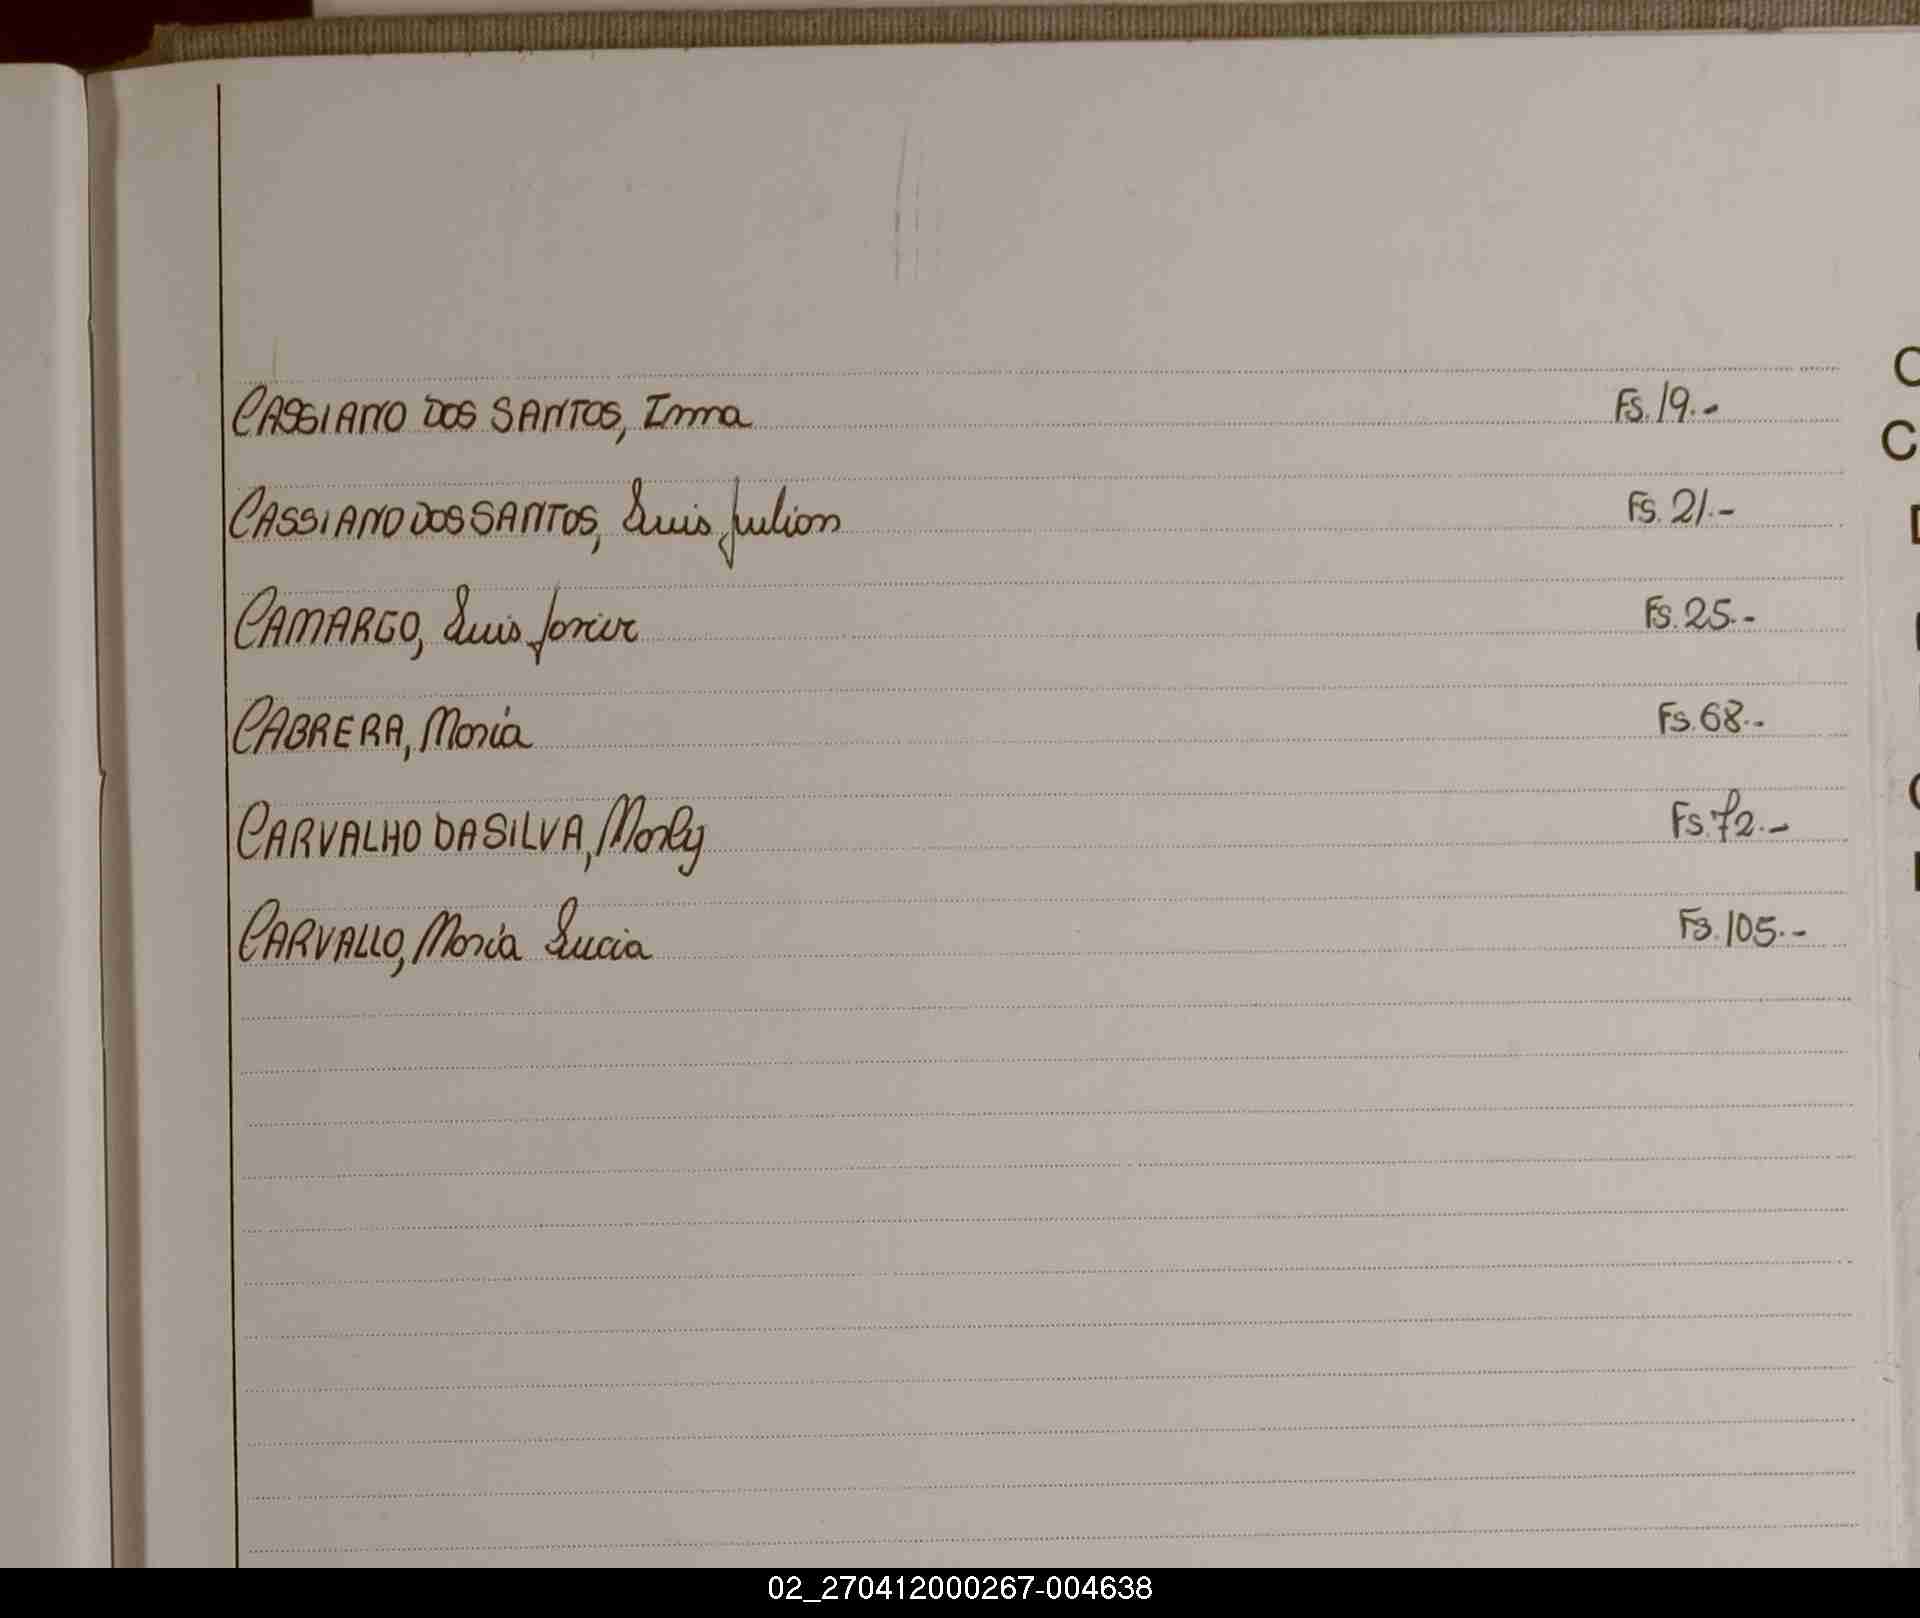 CASSIANO DOS SANTOS, Inma Fs. 19.-
CASSIANO DOS SANTOS, Luis Julian Fs. 21.-
CAMARGO, Luis Javier Fs. 25.-
CABRERA, María Fs. 68.-
CARVALHO DA SILVA, Marly Fs. 72.-
CARVALLO, María Lucia Fs. 105.-
02_270412000267-004638